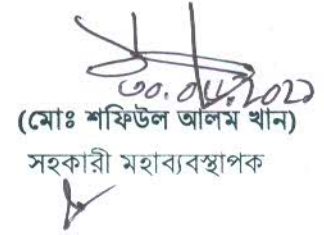 ৩০.০৮.২০২১
(মোঃ শফিউল আলম খান)
সহকারী মহাব্যবস্থাপক